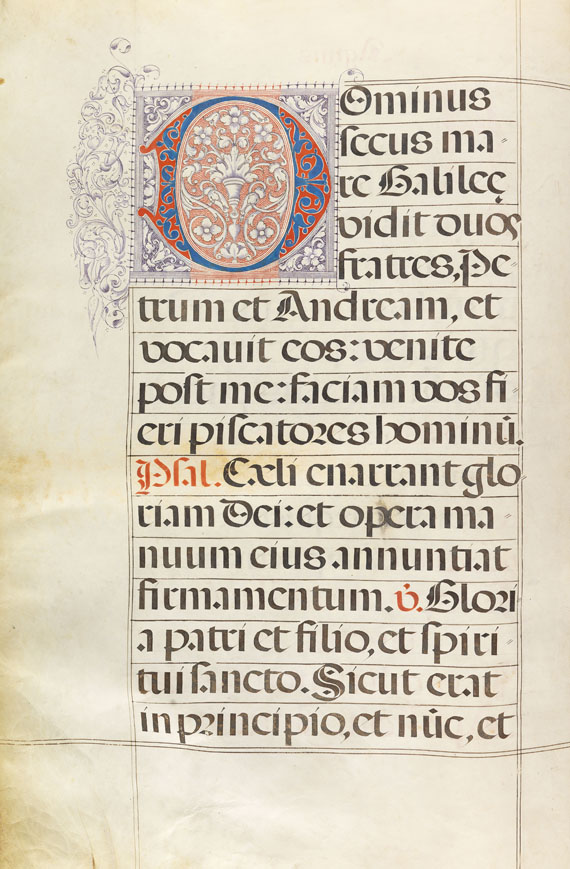 DOminus
secus ma=
re Galileę
vidit duos
fratres, Pe
trum et Andream, et
vocauit eos: venite
post me: faciam vos fi=
eri piscatores hominū.
Psal. Cæli enarrant glo
riam Dei: et opera ma
nuum eius annuntiat
firmamentum. ℣. Glori
a patri et filio, et spiri=
tui sancto. Sicut erat
in principio, et nūc, et